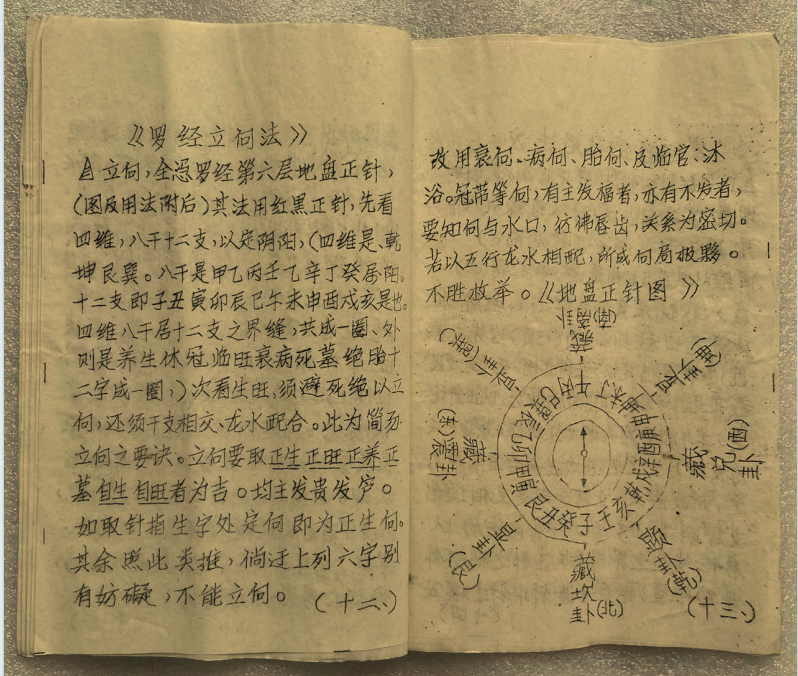 《罗经立向法》
自立向，全凭罗经第六层地盘正针，
(图及用法附后)其法用红黑正针，先看
四维，八干十二支，以定阴阳，(四维是、乾
坤艮巽。八干是甲乙丙壬乙辛丁癸居阳。
十二支即子丑寅卯辰巳午未申酉戌亥是也。
四维八干居十二支之界缝，共成一圈、外
则是养生休冠临旺衰病死墓绝胎十
二字成一圈，)次看生旺，须避死绝以立
向，还须干支相交、龙水配合。此为简易
立向之要诀。立向要取正生正旺正养正
墓自生自旺者为吉。均主发贵发
如取针指生字处定向即为正生向。
其余照此类推，倘迂上列六字别
有妨礙，不能立向。
(十二、)
故用衰向、病向、胎向、及临官：沐
浴。冠带等向，有主发福者，亦有不发者，
要知向与水口，彷彿唇齿，关系为密切。
若以五行龙水相配，所成向局极夥。
不胜枚举。《地盘正针图》
(南)离卦
藏
(东)震卦
藏
藏兑卦(西)
藏坎卦(北)
(艮)
(坤)
(乾)
午丙巳巽辰乙卯甲寅艮丑癸子壬亥乾戌辛酉庚申坤未丁
(十三、)